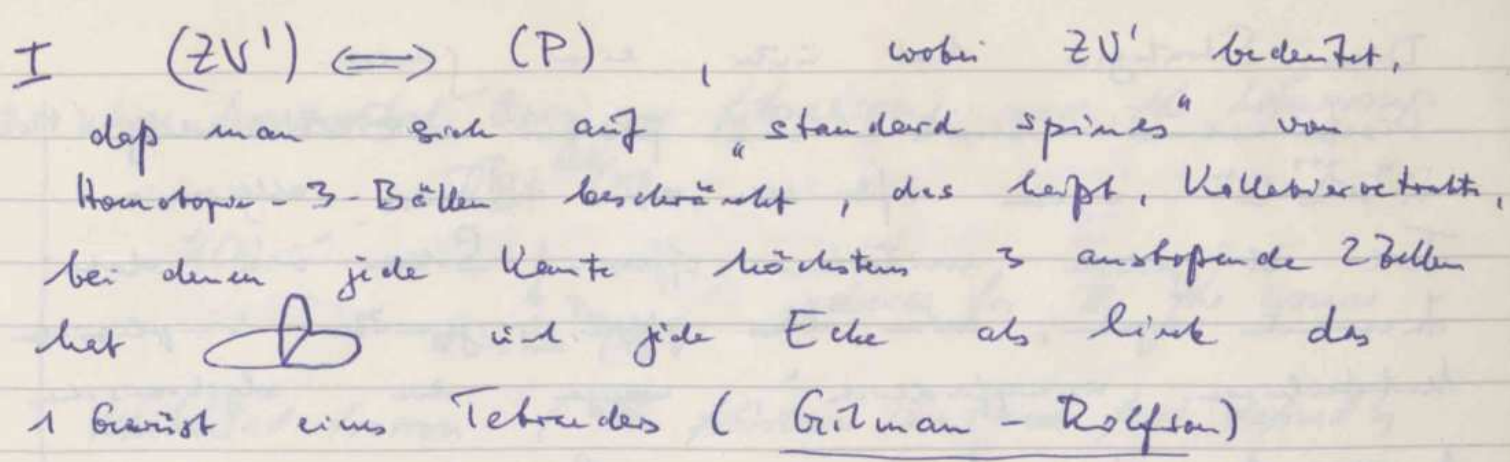 I (ZV') <=> (P) , wobei ZV' bedeutet,
daß man sich auf „standard spines“ von
Homotopie-3-Bällen beschränkt, das heißt, Kollabierretrakte,
bei denen jede Kante höchstens 3 anstoßende 2 Zellen
hat und jede Ecke als link das
1 Gerüst eines Tetraeders (Gilman - Rolfson)